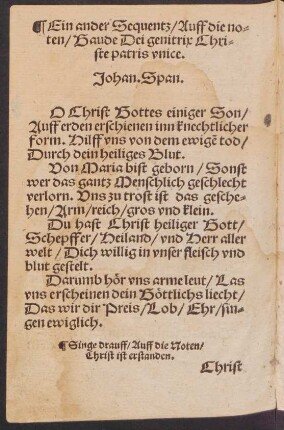 ¶ Ein ander Sequentz/ Auff die no-
ten/ Gaude Dei genitrix Chri-
ste patris vnice.
Johan. Span.
O Christ Gottes einiger Son/
Auff erden erschienen inn knechtlicher
form. Hilff vns von dem ewigē tod/
Durch dein heiliges Blut.
Von Maria bist geborn/ Sonst
wer das gantz Menschlich geschlecht
verlorn. Vns zu trost ist das gesche-
hen/ Arm/ reich/ gros vnd klein.
Du hast Christ heiliger Gott/
Schepffer/ Heiland/ vnd Herr aller
welt/ Dich willig in vnser fleisch vnd
blut gestelt.
Darumb hör vns arme leut/ Las
vns erscheinen dein Göttlichs liecht/
Das wir dir Preis/ Lob/ Ehr/ sin-
gen ewiglich.
¶ Singe drauff/ Auff die Noten/
Christ ist erstanden.
Christ